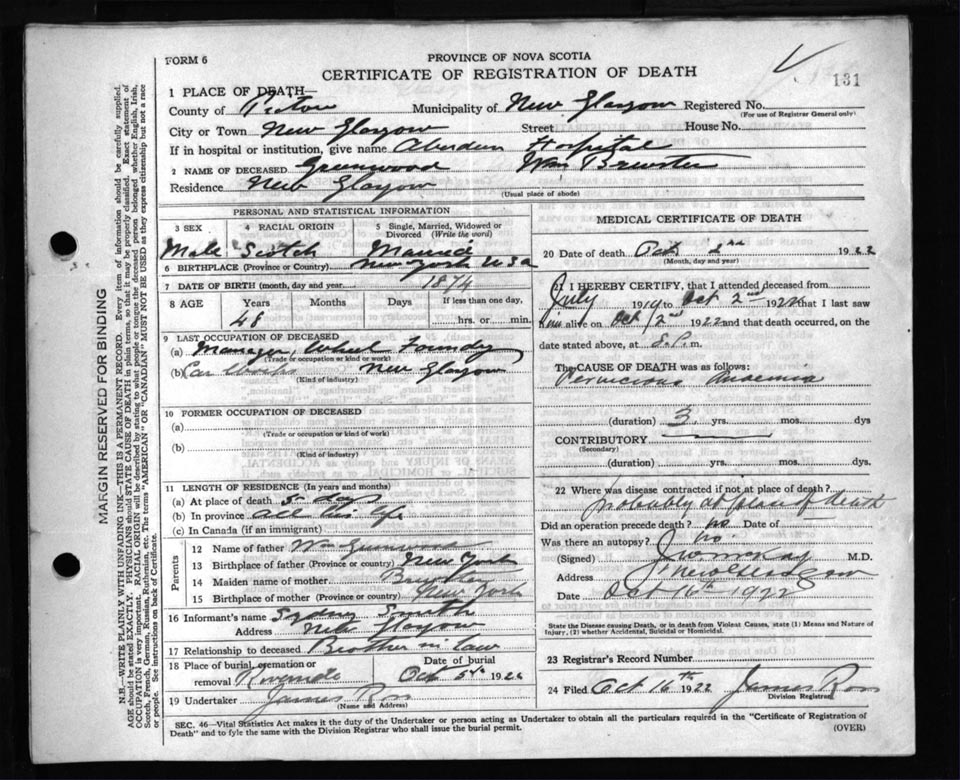 FORM 6
PROVINCE OF NOVA SCOTIA
CERTIFICATE OF REGISTRATION OF DEATH
131
1 PLACE OF DEATH—
County of Pictou Municipality of New Glasgow Registered No.
(For use of Registrar General only)
City or Town New Glasgow Street House No.
If in hospital or institution, give name Aberdeen Hospital
2 NAME OF DECEASED Greenwood Wm Brewster
Residence New Glasgow
(Usual place of abode)
PERSONAL AND STATISTICAL INFORMATION
3 SEX 4 RACIAL ORIGIN 5 Single, Married, Widowed or Divorced (Write the word)
Male Scotch Married
6 BIRTHPLACE (Province or Country) New York USA
7 DATE OF BIRTH (month, day and year) 1874
8 AGE Years Months Days If less than one day,
48 hrs. or min.
9 LAST OCCUPATION OF DECEASED
(a) Manager, Wheel Foundry
(Trade or occupation or kind of work)
(b) Car Works New Glasgow
(Kind of industry)
10 FORMER OCCUPATION OF DECEASED
(a)
(Trade or occupation or kind of work)
(b)
(Kind of industry)
11 LENGTH OF RESIDENCE (In years and months)
(a) At place of death 5 days
(b) In province all his life
(c) In Canada (if an immigrant)
Parents
12 Name of father Wm Greenwood
13 Birthplace of father (Province or country) New York
14 Maiden name of mother
15 Birthplace of mother (Province or country) New York
16 Informant's name Sydney Smith
Address New Glasgow
17 Relationship to deceased Brother in law
18 Place of burial, cremation or removal Riverside Date of burial Oct 5th 1922
19 Undertaker James Ross
(Name and Address)
MEDICAL CERTIFICATE OF DEATH
20 Date of death Oct 2nd 1922
(Month, day and year)
21 I HEREBY CERTIFY, that I attended deceased from
July 1919 to Oct 2nd 1922 that I last saw
him alive on Oct 2nd 1922 and that death occurred, on the
date stated above, at 8. P. m.
The CAUSE OF DEATH was as follows:
Pernicious Anaemia
(duration) 3 yrs. mos. dys
CONTRIBUTORY
(Secondary)
(duration) yrs. mos. dys
22 Where was disease contracted if not at place of death?
probably at place of death
Did an operation precede death? no Date of
Was there an autopsy? no.
(Signed) M.D.
Address New Glasgow
Date Oct 16th 1922
State the Disease causing Death, or in death from Violent Causes, state (1) Means and Nature of Injury, (2) whether Accidental, Suicidal or Homicidal.
23 Registrar's Record Number
24 Filed Oct 16th 1922 James Ross
Division Registrar
SEC. 46—Vital Statistics Act makes it the duty of the Undertaker or person acting as Undertaker to obtain all the particulars required in the "Certificate of Registration of
Death" and to fyle the same with the Division Registrar who shall issue the burial permit. (OVER)
MARGIN RESERVED FOR BINDING
N.B.—WRITE PLAINLY WITH UNFADING INK—THIS IS A PERMANENT RECORD. Every item of information should be carefully supplied.
AGE should be stated EXACTLY. PHYSICIANS should STATE CAUSE OF DEATH in plain terms, so that it may be properly classified. Exact statement of
OCCUPATION is very important. RACIAL ORIGIN will be described by stating to what people or tongue the deceased person belonged whether English, Irish,
Scotch, French, German, Russian, Ruthenian, etc. The terms "AMERICAN" OR "CANADIAN" MUST NOT BE USED as they express citizenship but not a race
or people. See instructions on back of Certificate.